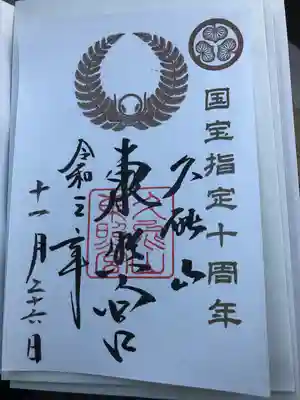 国宝指定十周年
久能山
東照宮
令和三年
十一月二十六日
久能山
東照宮